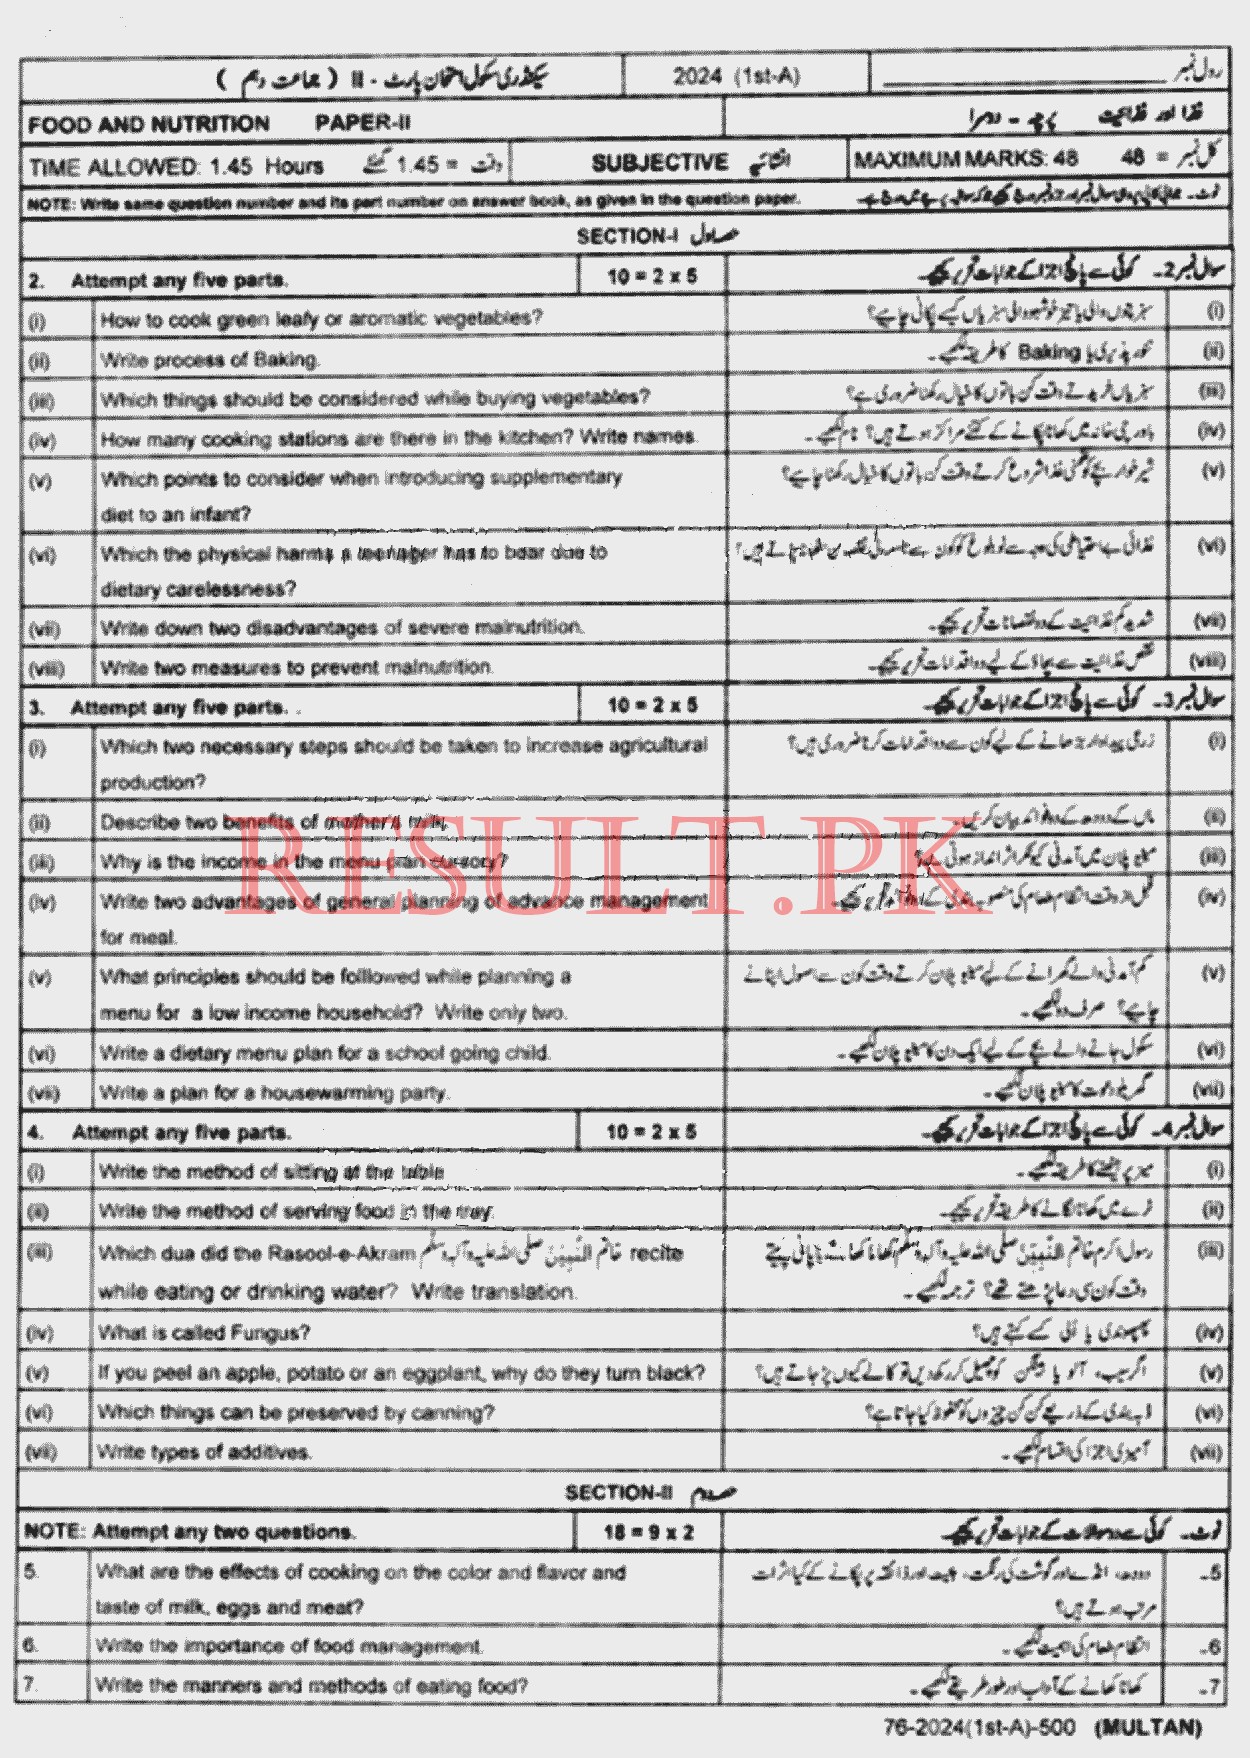 سیکنڈری سکول امتحان پارٹ - II ( جماعت دہم )
2024 (1st-A)
رول نمبر
FOOD AND NUTRITION PAPER-II
غذا اور غذائیت پرچہ - دوسرا
TIME ALLOWED: 1.45 Hours وقت = 1.45 گھنٹے
SUBJECTIVE انشائیہ
MAXIMUM MARKS: 48 کل نمبر = 48
NOTE: Write same question number and its part number on answer book, as given in the question paper.
SECTION-I حصہ اول
2. Attempt any five parts. 10 = 2 x 5
سوال نمبر 2۔ کوئی سے پانچ اجزا کے جوابات تحریر کیجیے۔
(i) How to cook green leafy or aromatic vegetables?
سبز پتوں والی یا تیز خوشبو والی سبزیاں کیسے پکانی چاہیے؟ (i)
(ii) Write process of Baking.
Baking کا طریقہ لکھیے۔ (ii)
(iii) Which things should be considered while buying vegetables?
سبزیاں خریدتے وقت کن باتوں کا خیال رکھنا ضروری ہے؟ (iii)
(iv) How many cooking stations are there in the kitchen? Write names.
باورچی خانہ میں کھانا پکانے کے کتنے مراکز ہوتے ہیں؟ نام لکھیے۔ (iv)
(v) Which points to consider when introducing supplementary
diet to an infant?
شیر خوار بچے کو ٹھوس غذا شروع کرتے وقت کن باتوں کا خیال رکھنا چاہیے؟ (v)
(vi) Which the physical harms a teenager has to bear due to
dietary carelessness?
غذائی بے احتیاطی کی وجہ سے نوبلوغ کو کون سے جسمانی نقصان اٹھانا پڑتے ہیں؟ (vi)
(vii) Write down two disadvantages of severe malnutrition.
شدید کم غذائیت کے دو نقصانات تحریر کیجیے۔ (vii)
(viii) Write two measures to prevent malnutrition.
نقص غذائیت سے بچاؤ کے لیے دو اقدامات تحریر کیجیے۔ (viii)
3. Attempt any five parts. 10 = 2 x 5
سوال نمبر 3۔ کوئی سے پانچ اجزا کے جوابات تحریر کیجیے۔
(i) Which two necessary steps should be taken to increase agricultural
production?
زرعی پیداوار بڑھانے کے لیے کون سے دو اقدامات کرنا ضروری ہیں؟ (i)
(ii) Describe two benefits of mother's milk.
ماں کے دودھ کے دو فوائد بیان کریں۔ (ii)
(iii) Why is the income in the menu plan cursory?
مینیو پلان میں آمدنی کیونکر اثر انداز ہوتی ہے؟ (iii)
(iv) Write two advantages of general planning of advance management
for meal.
قبل از وقت انتظام طعام کی منصوبہ بندی کے تحریر کیجیے۔ (iv)
(v) What principles should be folllowed while planning a
menu for a low income household? Write only two.
کم آمدنی والے گھرانے کے لیے مینیو پلان کرتے وقت کون سے اصول اپنانے
چاہیے؟ صرف دو لکھیے۔ (v)
(vi) Write a dietary menu plan for a school going child.
سکول جانے والے بچے کے لیے ایک دن کا مینیو پلان لکھیے۔ (vi)
(vii) Write a plan for a housewarming party.
گھریلو دعوت کا مینیو پلان لکھیے۔ (vii)
4. Attempt any five parts. 10 = 2 x 5
سوال نمبر 4۔ کوئی سے پانچ اجزا کے جوابات تحریر کیجیے۔
(i) Write the method of sitting at the table
میز پر بیٹھنے کا طریقہ لکھیے۔ (i)
(ii) Write the method of serving food in the tray.
ٹرے میں کھانا لگانے کا طریقہ تحریر کیجیے۔ (ii)
(iii) Which dua did the Rasool-e-Akram خاتم النبیین صلی اللہ علیہ وآلہ وسلم recite
while eating or drinking water? Write translation.
رسول اکرم خاتم النبیین صلی اللہ علیہ وآلہ وسلم کھانا کھاتے یا پانی پیتے
وقت کون سی دعا پڑھتے تھے؟ ترجمہ لکھیے۔ (iii)
(iv) What is called Fungus?
پھپھوندی یا اُلی کسے کہتے ہیں؟ (iv)
(v) If you peel an apple, potato or an eggplant, why do they turn black?
اگر سیب، آلو یا بینگن کو چھیل کر رکھ دیں تو کالے کیوں پڑ جاتے ہیں؟ (v)
(vi) Which things can be preserved by canning?
ڈبہ بندی کے ذریعے کن کن چیزوں کو محفوظ کیا جاتا ہے؟ (vi)
(vii) Write types of additives.
آمیزی اجزا کی اقسام لکھیے۔ (vii)
SECTION-II حصہ دوم
NOTE: Attempt any two questions. 18 = 9 x 2
نوٹ۔ کوئی سے دو سوالات کے جوابات تحریر کیجیے۔
5. What are the effects of cooking on the color and flavor and
taste of milk, eggs and meat?
دودھ، انڈے اور گوشت کی رنگت، ہیئت اور ذائقہ پر پکانے کے کیا اثرات
مرتب ہوتے ہیں؟ 5۔
6. Write the importance of food management.
انتظام طعام کی اہمیت لکھیے۔ 6۔
7. Write the manners and methods of eating food?
کھانا کھانے کے آداب اور طور طریقے لکھیے۔ 7۔
76-2024(1st-A)-500 (MULTAN)
RESULT.PK